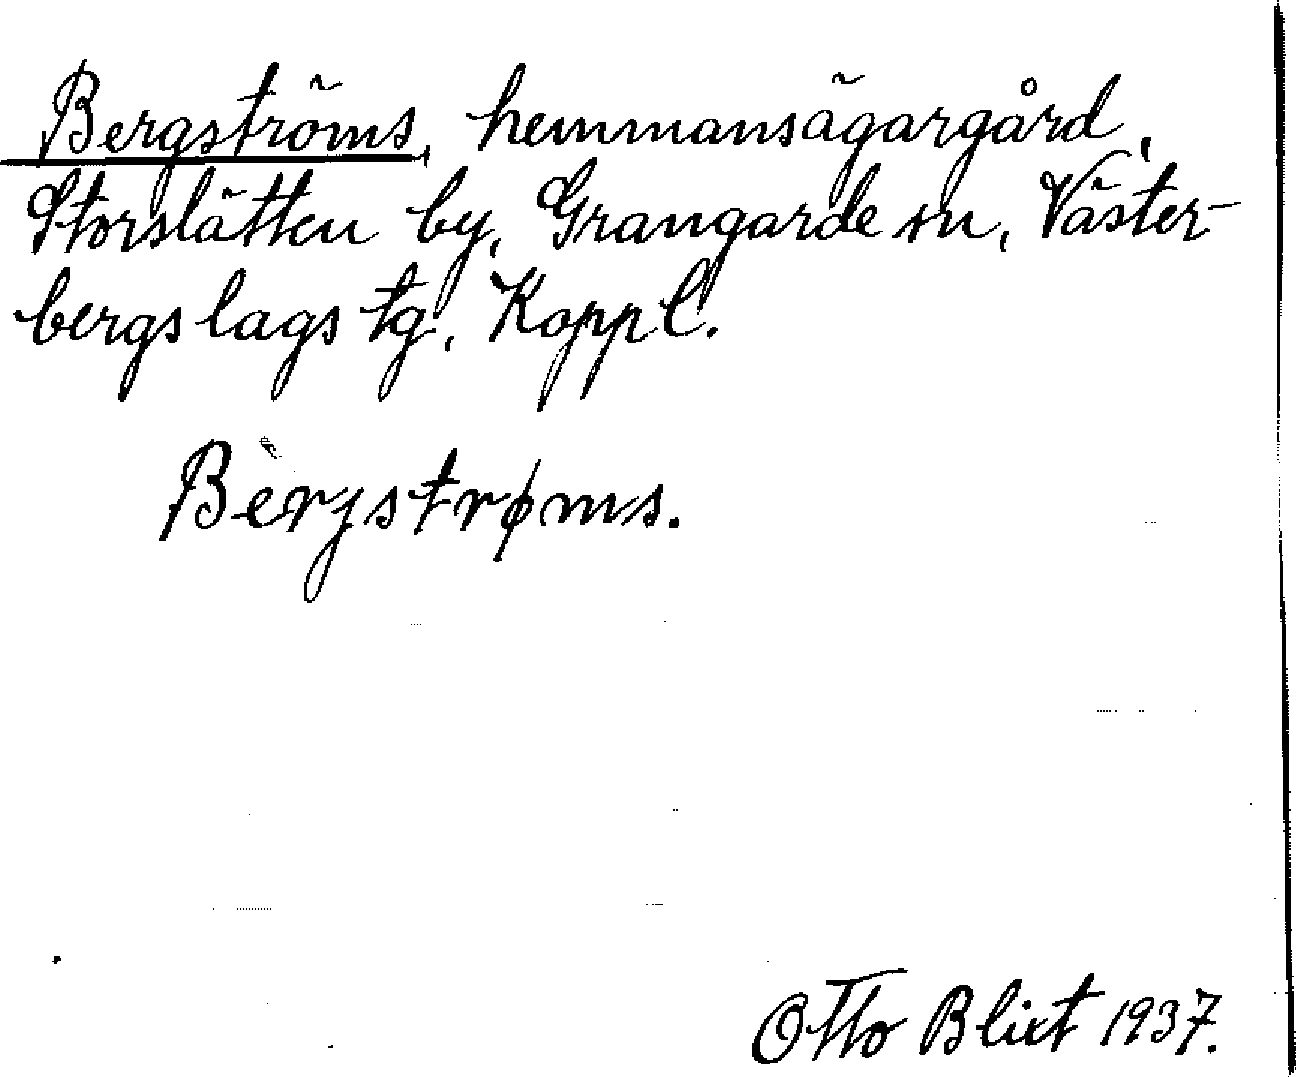 Bergströms, hemmansägargård,
Storslätten by, Grangarde sn, Väster-
bergslags tg, Koppl.
Bèrjstrøms.
Otto Blixt 1937.